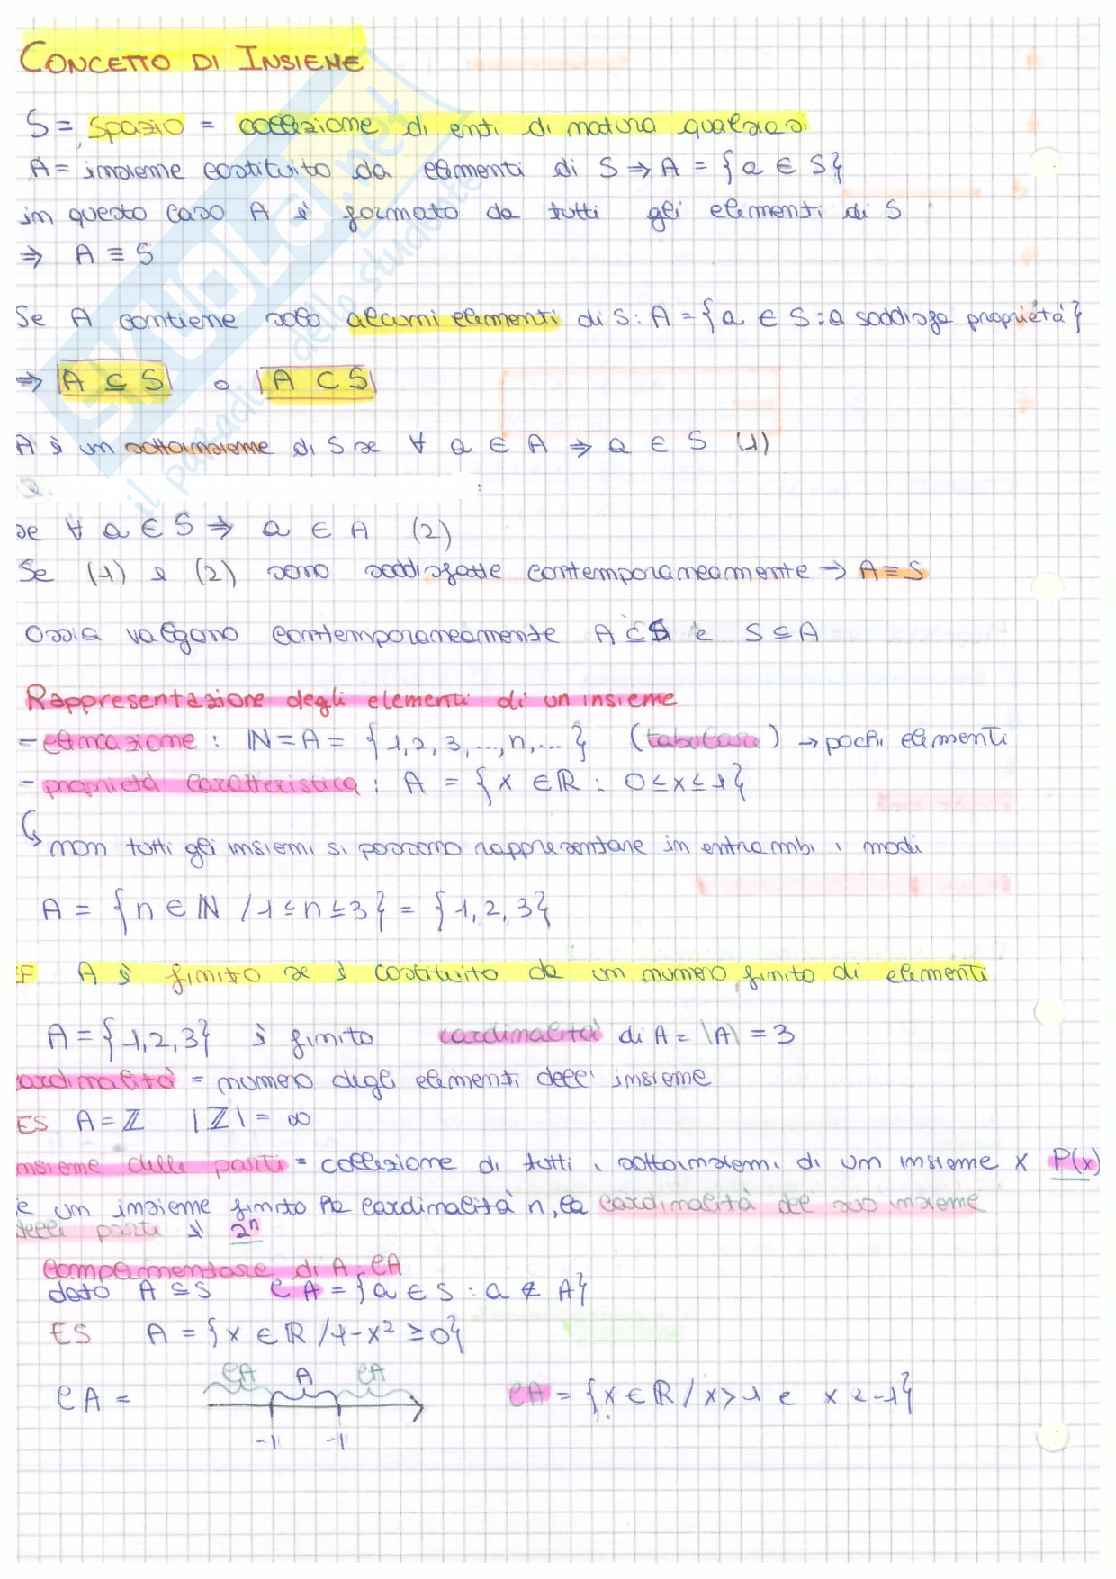 CONCETTO DI INSIEME
S = Spazio = collezione di enti di natura qualsiasi
A = insieme costituito da elementi di S ⇒ A = {a ∈ S}
in questo caso A è formato da tutti gli elementi di S
⇒ A ≡ S
Se A contiene solo alcuni elementi di S : A = {a ∈ S : a soddisfa proprietà}
⇒ A ⊆ S o A ⊂ S
A è un sottoinsieme di S se ∀ a ∈ A ⇒ a ∈ S (1)
se ∀ a ∈ S ⇒ a ∈ A (2)
Se (1) e (2) sono soddisfatte contemporaneamente → A ≡ S
Ossia valgono contemporaneamente A ⊆ S e S ⊆ A
Rappresentazione degli elementi di un insieme
- elencazione : ℕ = A = {1, 2, 3, ..., n, ... } (tabulare) → pochi elementi
- proprietà caratteristica : A = {x ∈ ℝ : 0 ≤ x ≤ 1}
↳ non tutti gli insiemi si possono rappresentare in entrambi i modi
A = {n ∈ ℕ / 1 ≤ n ≤ 3} = {1, 2, 3}
EF A è finito se è costituito da un numero finito di elementi
A = {1, 2, 3} è finito cardinalità di A = |A| = 3
ardinalità = numero degli elementi dell'insieme
ES A = ℤ |ℤ| = ∞
nsieme delle parti = collezione di tutti i sottoinsiemi di un insieme X P(x)
e un insieme finito ha cardinalità n, la cardinalità del suo insieme
delle parti è 2ⁿ
Complementare di A CA
dato A ⊆ S CA = {a ∈ S : a ∉ A}
ES A = {x ∈ ℝ / 1 - x² ≥ 0}
CA A CA
CA = CA = {x ∈ ℝ / x > 1 e x < -1}
-1 -1
SKUOLA.net
il paradiso dello studente